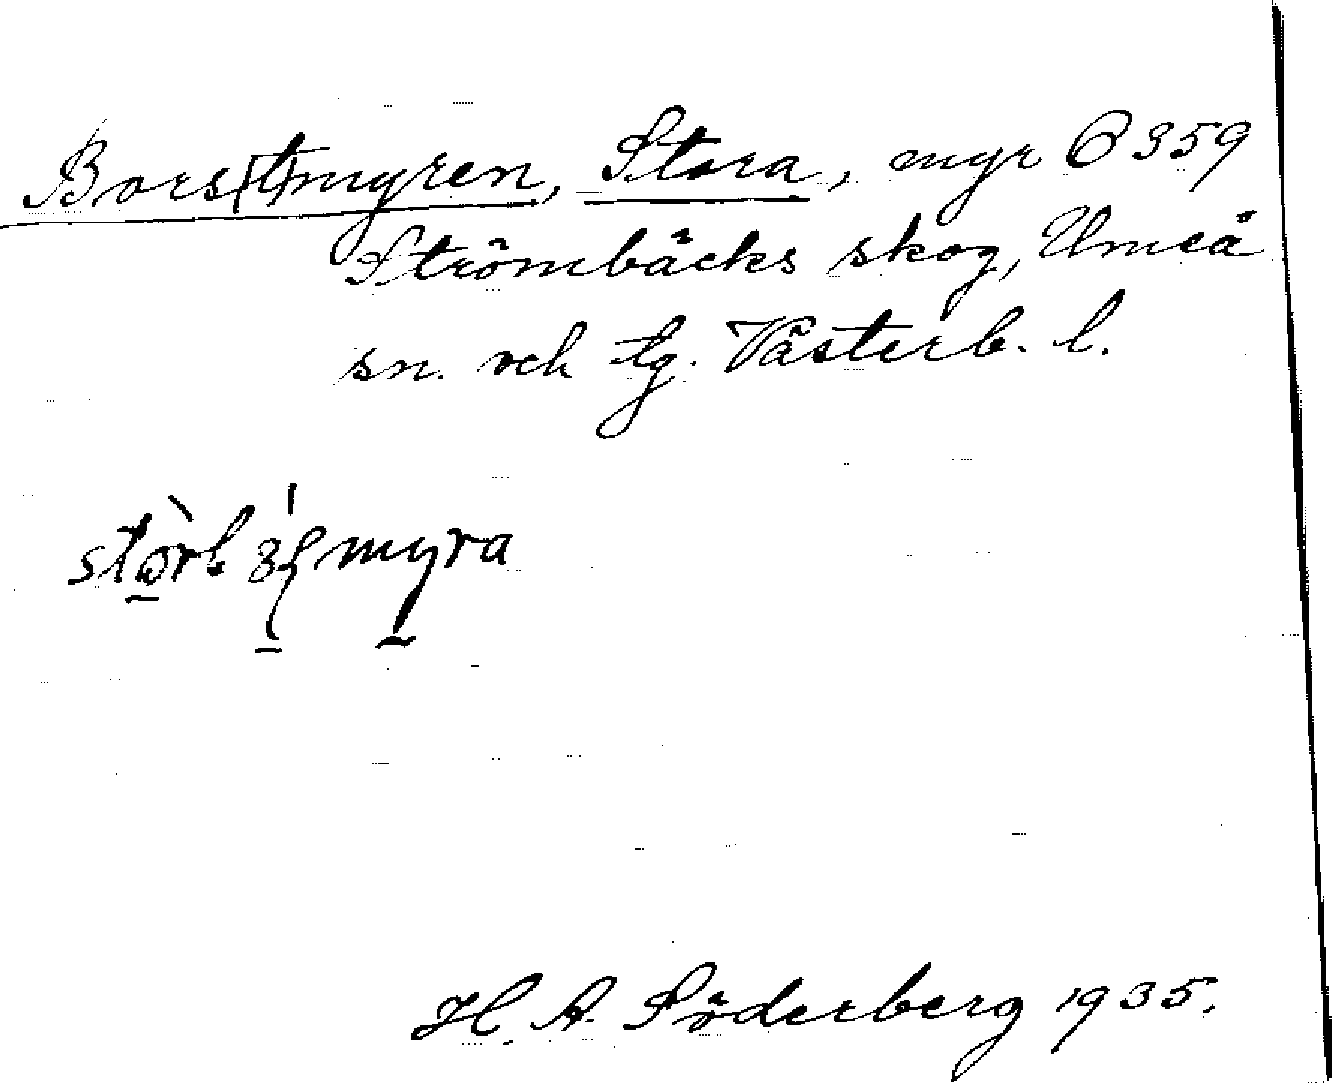 Bors(t)myren, Stora, myr 6359
Strömbäcks skog, Umeå
sn. och tg. Västerb. l.
H. A. Söderberg 1935.